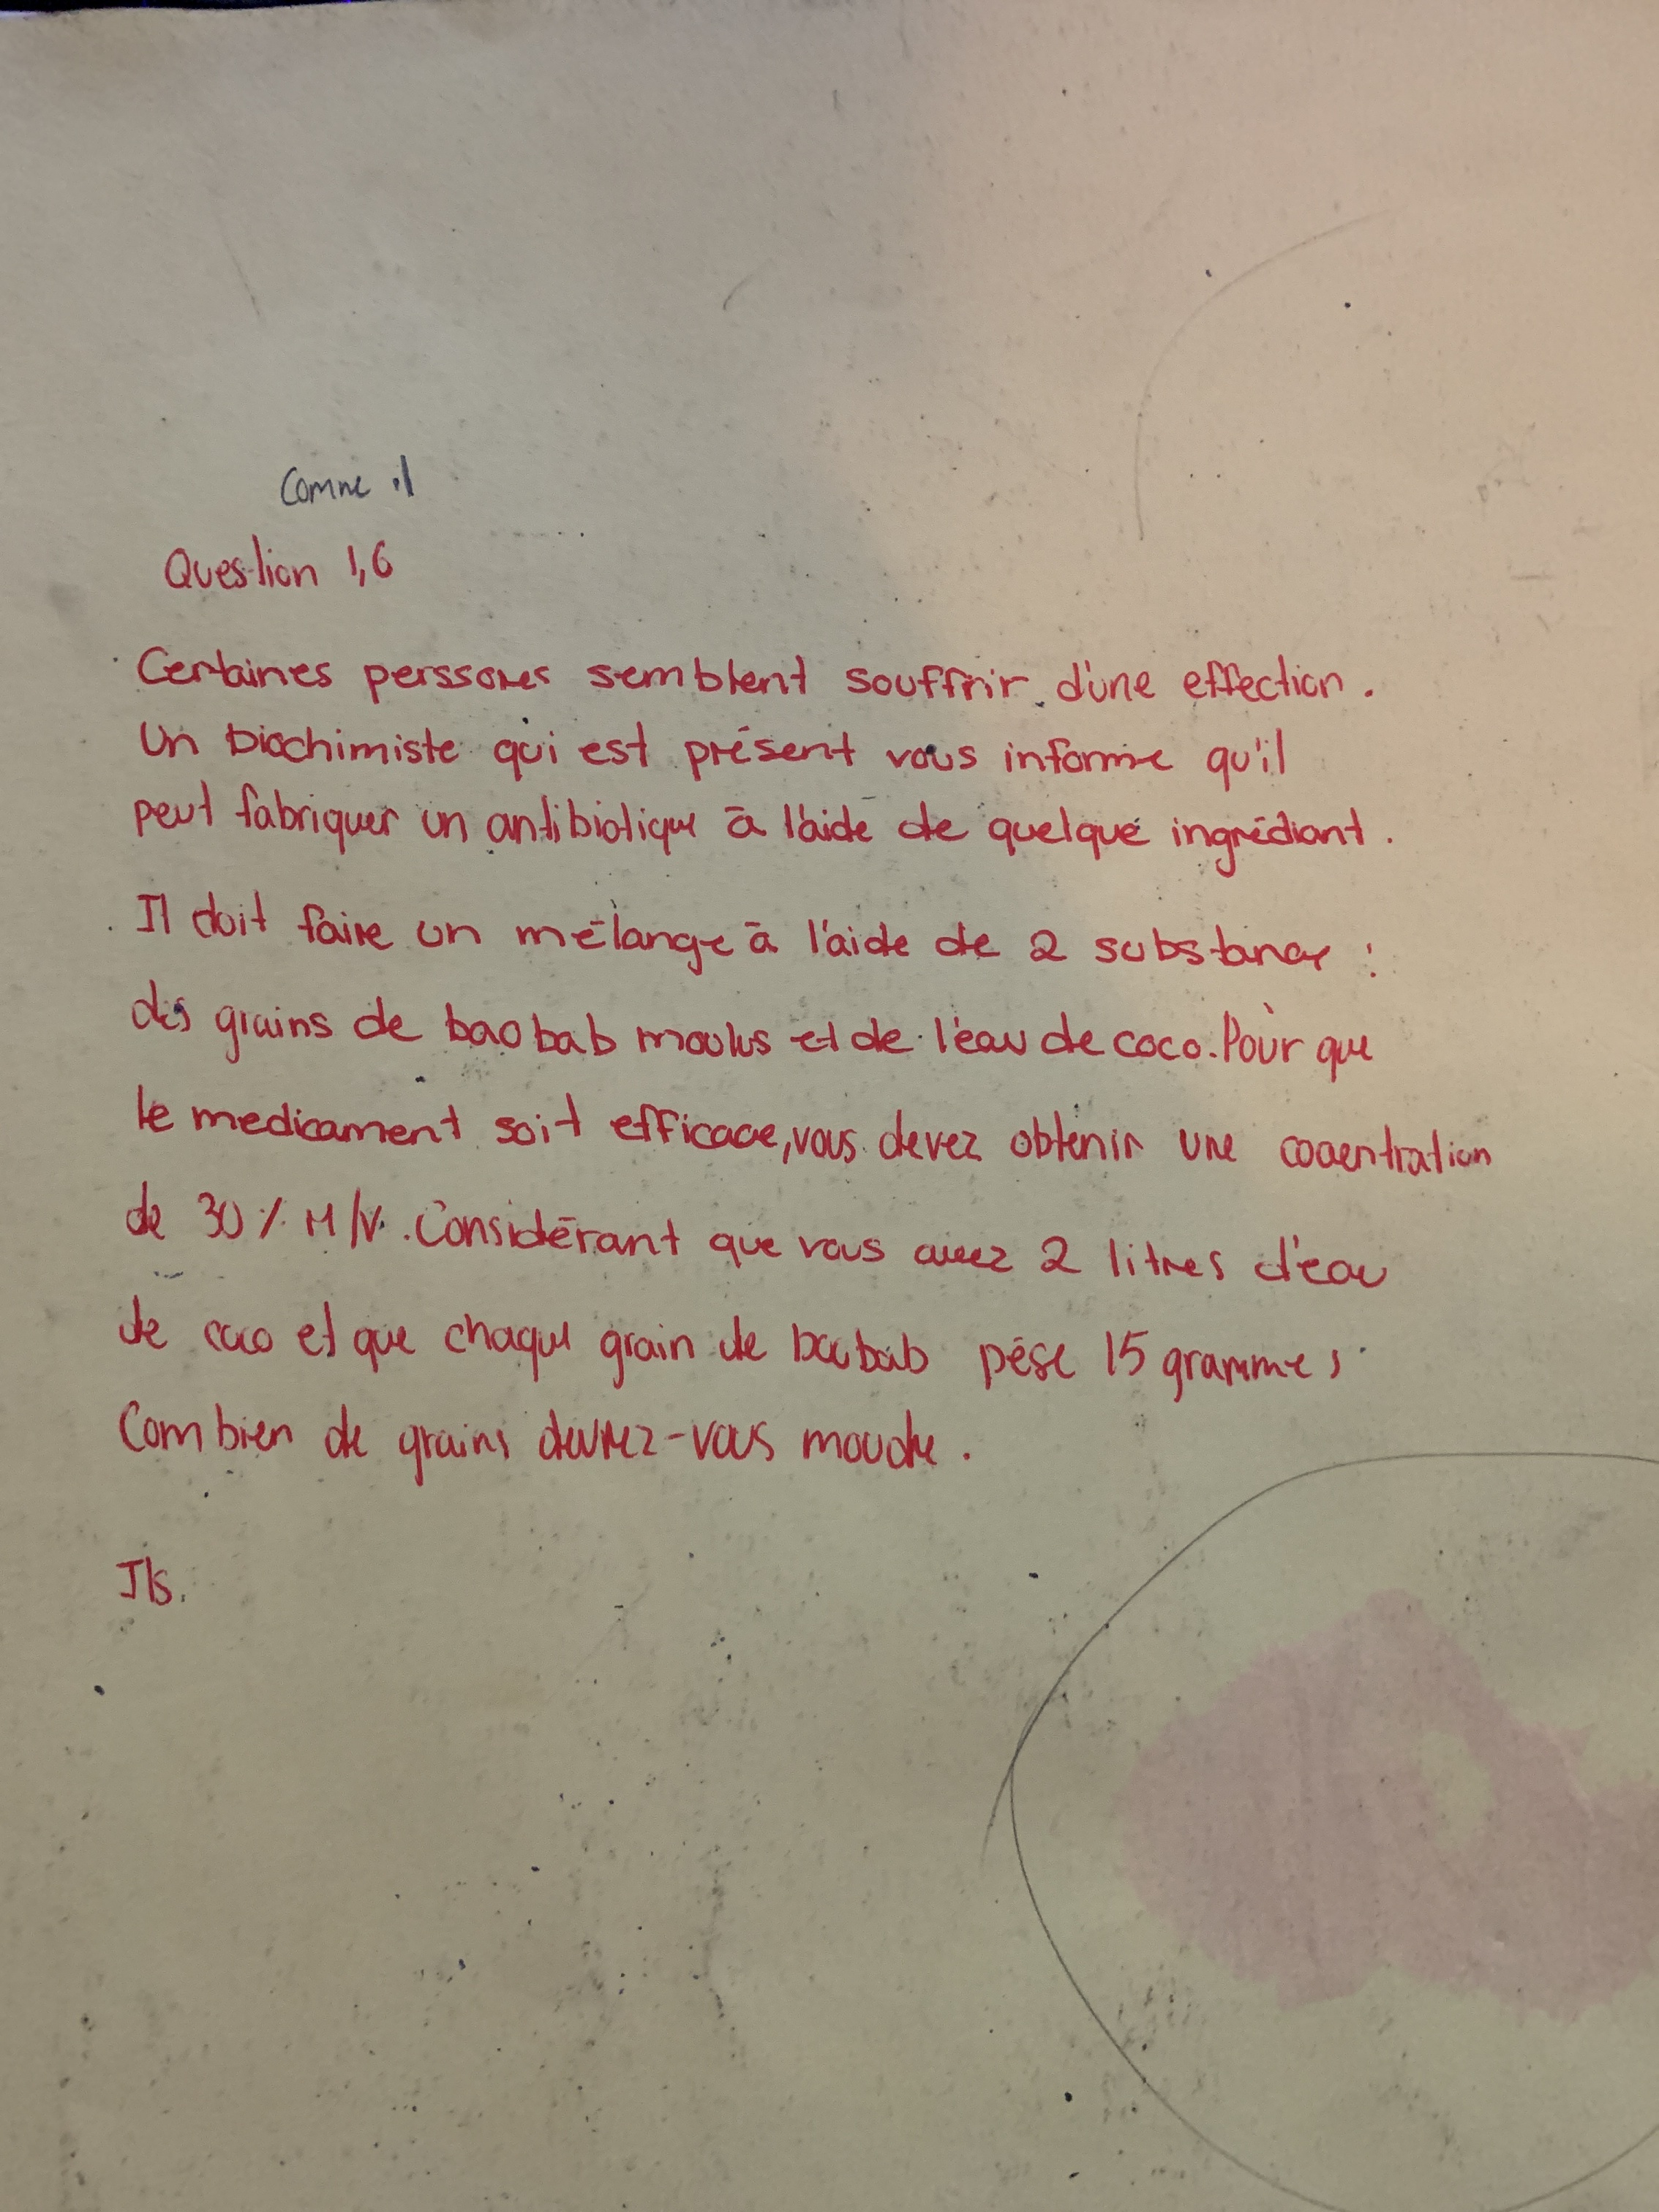 Comme il
Question 1,6
Certaines perssones semblent souffrir d'une effection.
Un biochimiste qui est présent vous informe qu'il
peut fabriquer un antibiotique à l'aide de quelque ingrédiant.
Il doit faire un mélange à l'aide de 2 substance :
des grains de baobab moulus et de l'eau de coco. Pour que
le medicament soit efficace, vous devez obtenir une concentration
de 30 % M/V. Considérant que vous avez 2 litres d'eau
de coco et que chaque grain de baobab pèse 15 grammes,
Combien de grains devrez-vous moudre.
Ils.